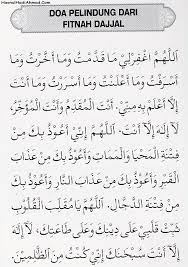 HasrulHadiAhmad.Com
DOA PELINDUNG DARI
FITNAH DAJJAL
اَللَّهُمَّ اغْفِرْلِيْ مَا قَدَّمْتُ وَمَا أَخَّرْتُ وَمَا
أَسْرَفْتُ وَمَا أَعْلَنْتُ وَمَا أَسْرَرْتُ وَمَا أَنْتَ
أَعْلَمُ بِهِ مِنِّيْ. أَنْتَ الْمُقَدِّمُ وَأَنْتَ الْمُؤَخِّرُ،
لَا إِلَهَ إِلَّا أَنْتَ. اَللَّهُمَّ إِنِّيْ أَعُوْذُ بِكَ مِنْ
فِتْنَةِ الْمَحْيَا وَالْمَمَاتِ وَأَعُوْذُ بِكَ مِنْ عَذَابِ
الْقَبْرِ وَأَعُوْذُ بِكَ مِنْ عَذَابِ النَّارِ وَأَعُوْذُ بِكَ
مِنْ فِتْنَةِ الدَّجَّالِ. اَللَّهُمَّ يَا مُقَلِّبَ الْقُلُوْبِ
ثَبِّتْ قَلْبِيْ عَلَى دِيْنِكَ وَعَلَى طَاعَتِكَ، لَا إِلَهَ
إِلَّا أَنْتَ سُبْحَنَكَ إِنِّيْ كُنْتُ مِنَ الظَّلِمِيْنَ.